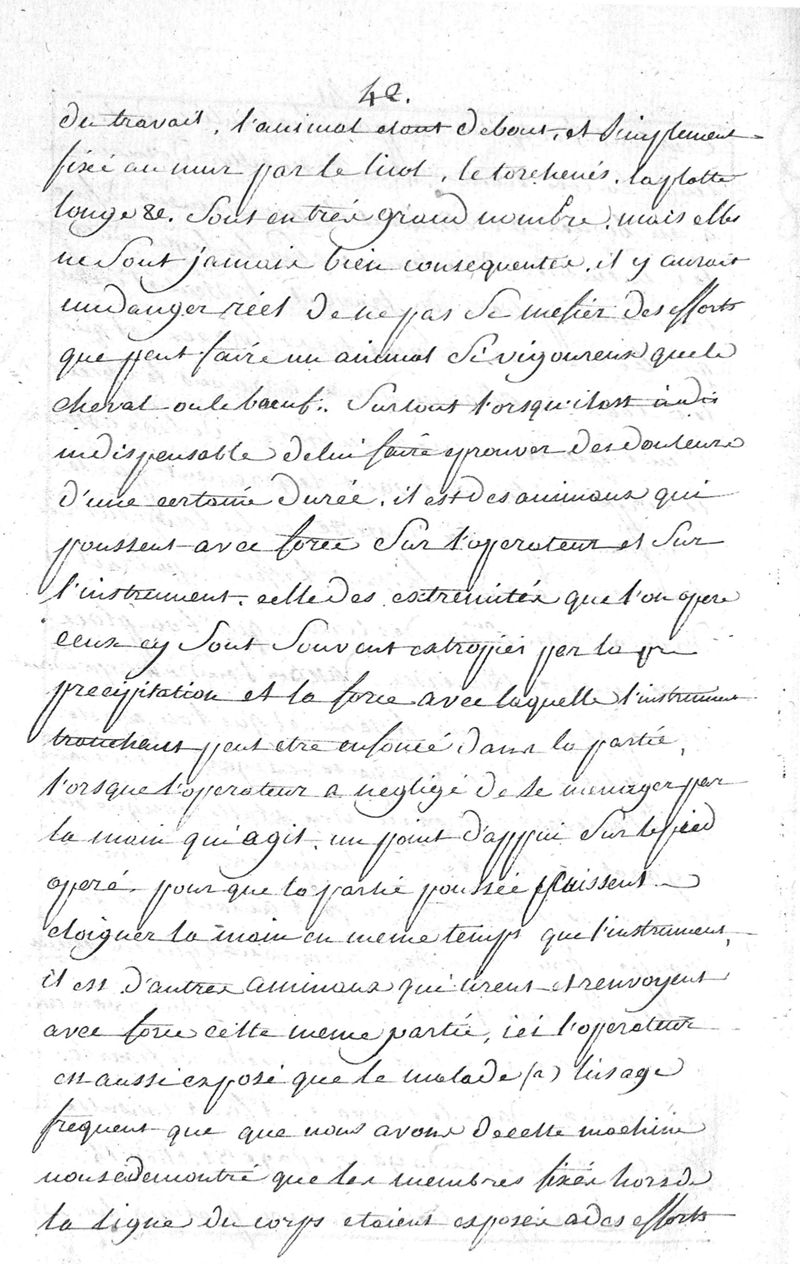 42.
du travail, l'animal etant debout, et simplement
fixé au mur par le licol, le torchenés, la platte
longe &c. Sont en très grand nombre, mais elles
ne Sont jamais bien consequentes, il y aurait
un danger réel de ne pas se mefier des efforts
que peut faire un animal si vigoureux que le
cheval ou le bœuf. Surtout lorsqu'il est
indispensable de lui faire eprouver des douleurs
d'une certaine durée, il est des animaux qui
poussent avec force Sur l'operateur et Sur
l'instrument, celle des extremités que l'on opere
ceux cy Sont Souvent estropiés par la
precipitation et la force avec laquelle l'instrument
tranchant peut etre enfoncé dans la partie,
lorsque l'operateur a negligé de se menager par
la main qui agit, un point d'appui Sur le pied
operé, pour que la partie poussée puissent
eloigner la main en meme temps que l'instrument,
il est d'autres animaux qui tirent et renvoyent
avec force cette meme partie, ici l'operateur
est aussi exposé que le malade (a) l'usage
frequent que que nous avons de cette machine
nous a demontré que les membres fixés hors de
la ligne du corps etaient exposés a des efforts